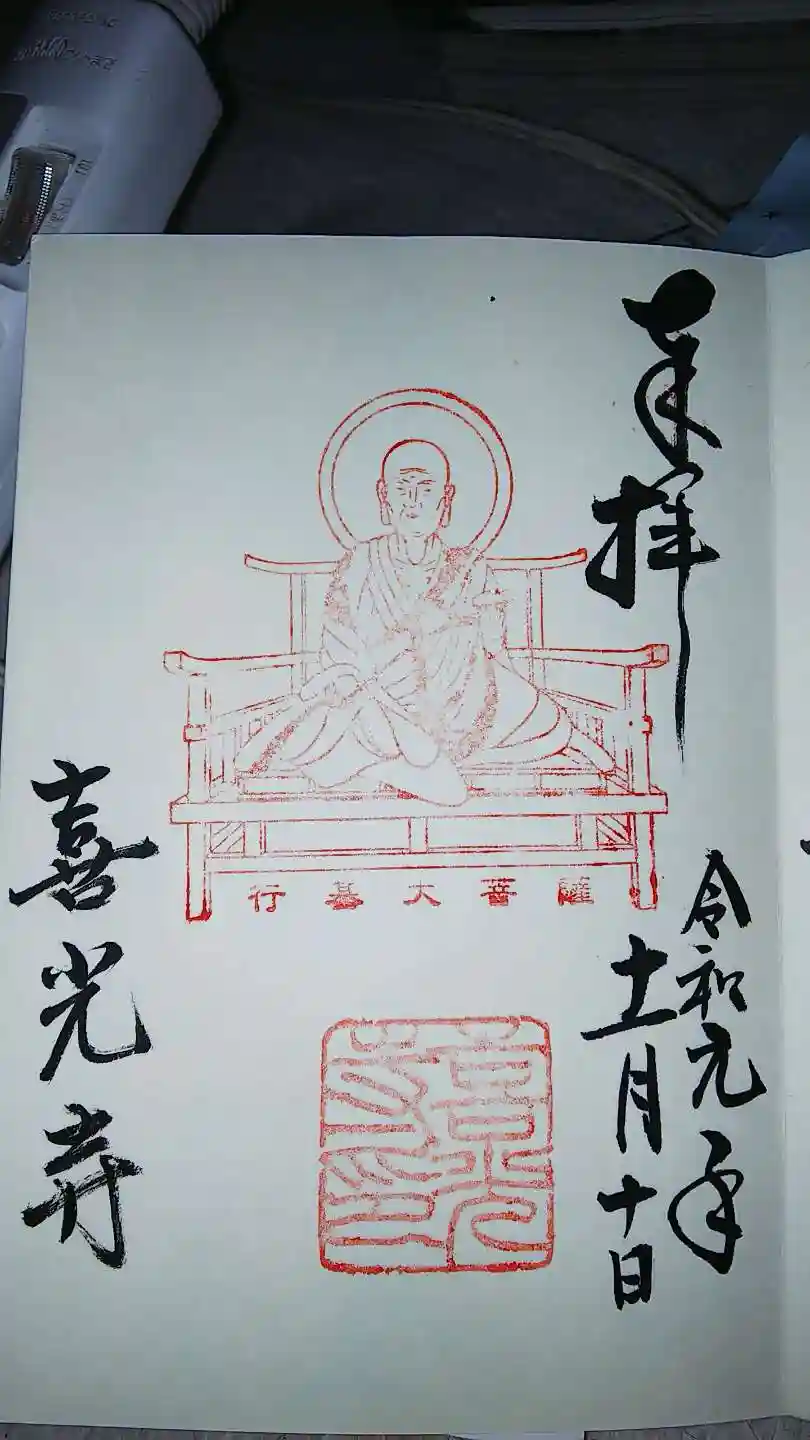 奉拝
令和元年
十一月十日
行基大菩薩
喜光寺印
喜光寺